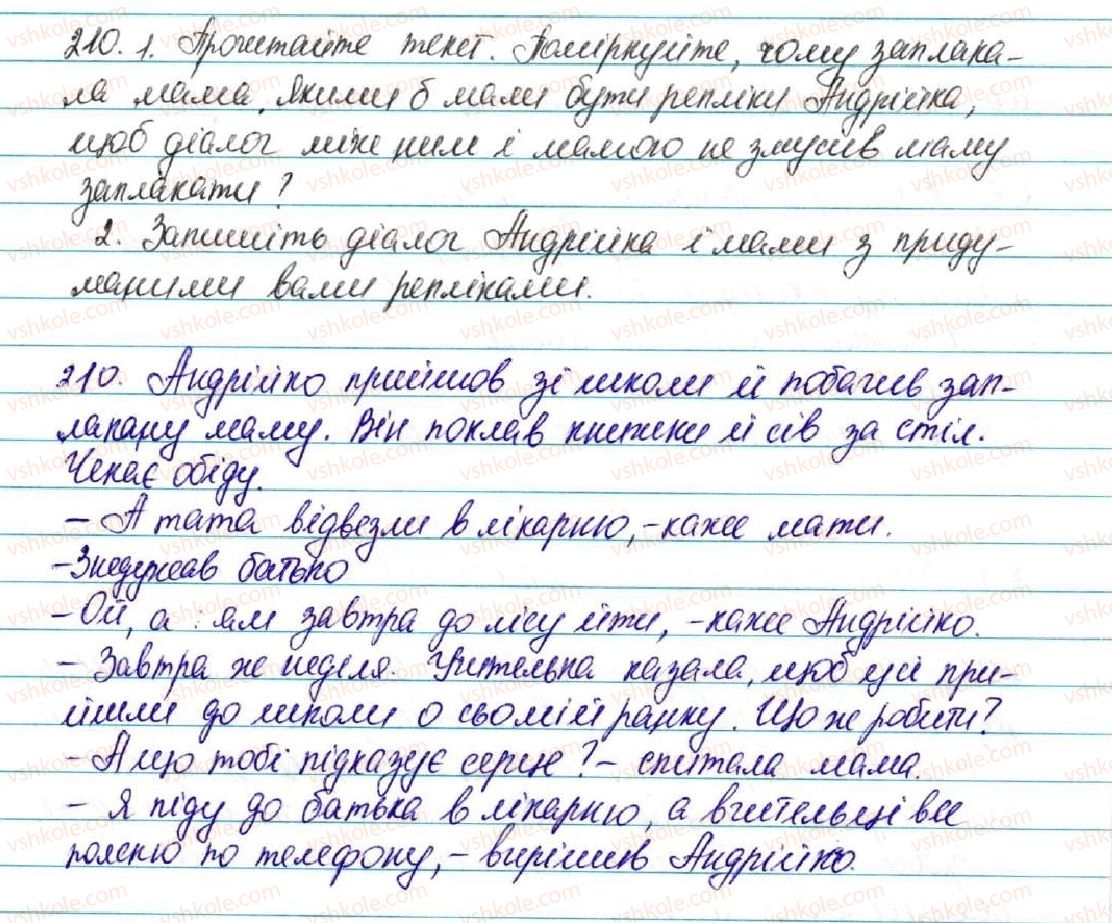 210. 1. Прочитайте текст. Поміркуйте, чому заплака-
ла мама. Якими б мали бути репліки Андрійка,
щоб діалог між ним і мамою не змусив маму
заплакати?
2. Запишіть діалог Андрійка і мами з приду-
маними вами репліками.
210. Андрійко прийшов зі школи й побачив зап-
лакану маму. Він поклав книжки й сів за стіл.
Чекає обіду.
- А тата відвезли в лікарню, - каже мати.
- Знедужав батько
- Ой, а нам завтра до лісу йти, - каже Андрійко.
- Завтра ж неділя. Учителька казала, щоб усі при-
йшли до школи о сьомій ранку. Що ж робити?
- А що тобі підказує серце? - спитала мама.
- Я піду до батька в лікарню, а вчительці все
поясню по телефону, - вирішив Андрійко.